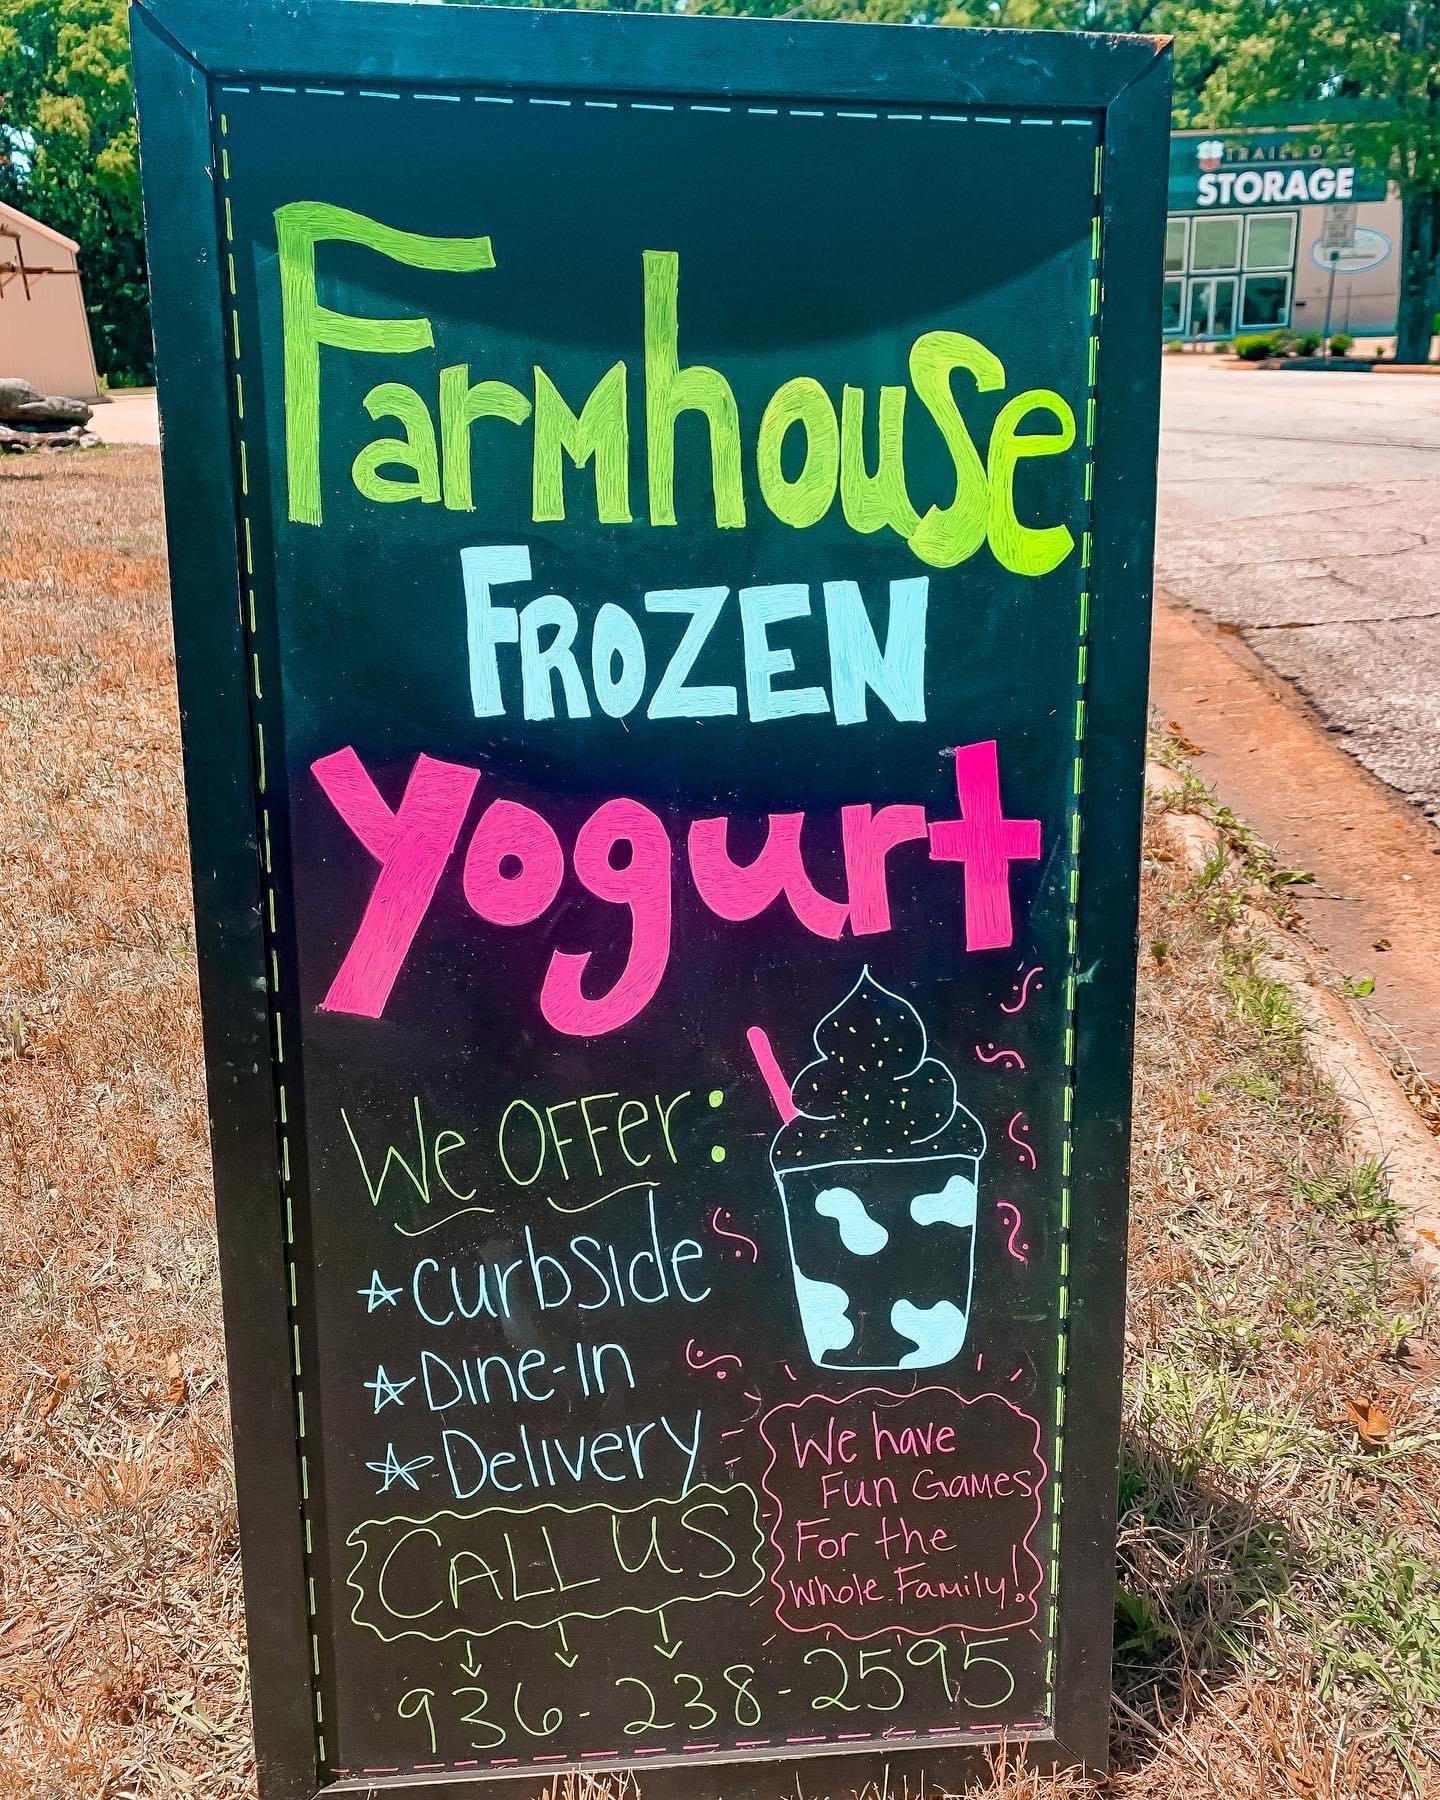 Farmhouse
FROZEN
Yogurt
We OFFer:
Curbside
Dine-In
Delivery
CALL US
We have
Fun Games
For the
Whole Family!
936-238-2595
STORAGE